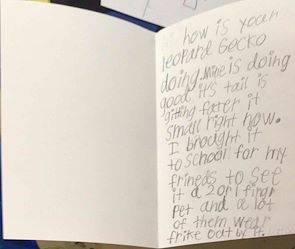 how is your
leopard Gecko
doing. Mine is doing
good it's tail is
gitting fatter it
small right now.
I brought it
to school for my
frineds to see
it a 2 or 1 finger
Pet and a lot
of them wear
frike out by it.